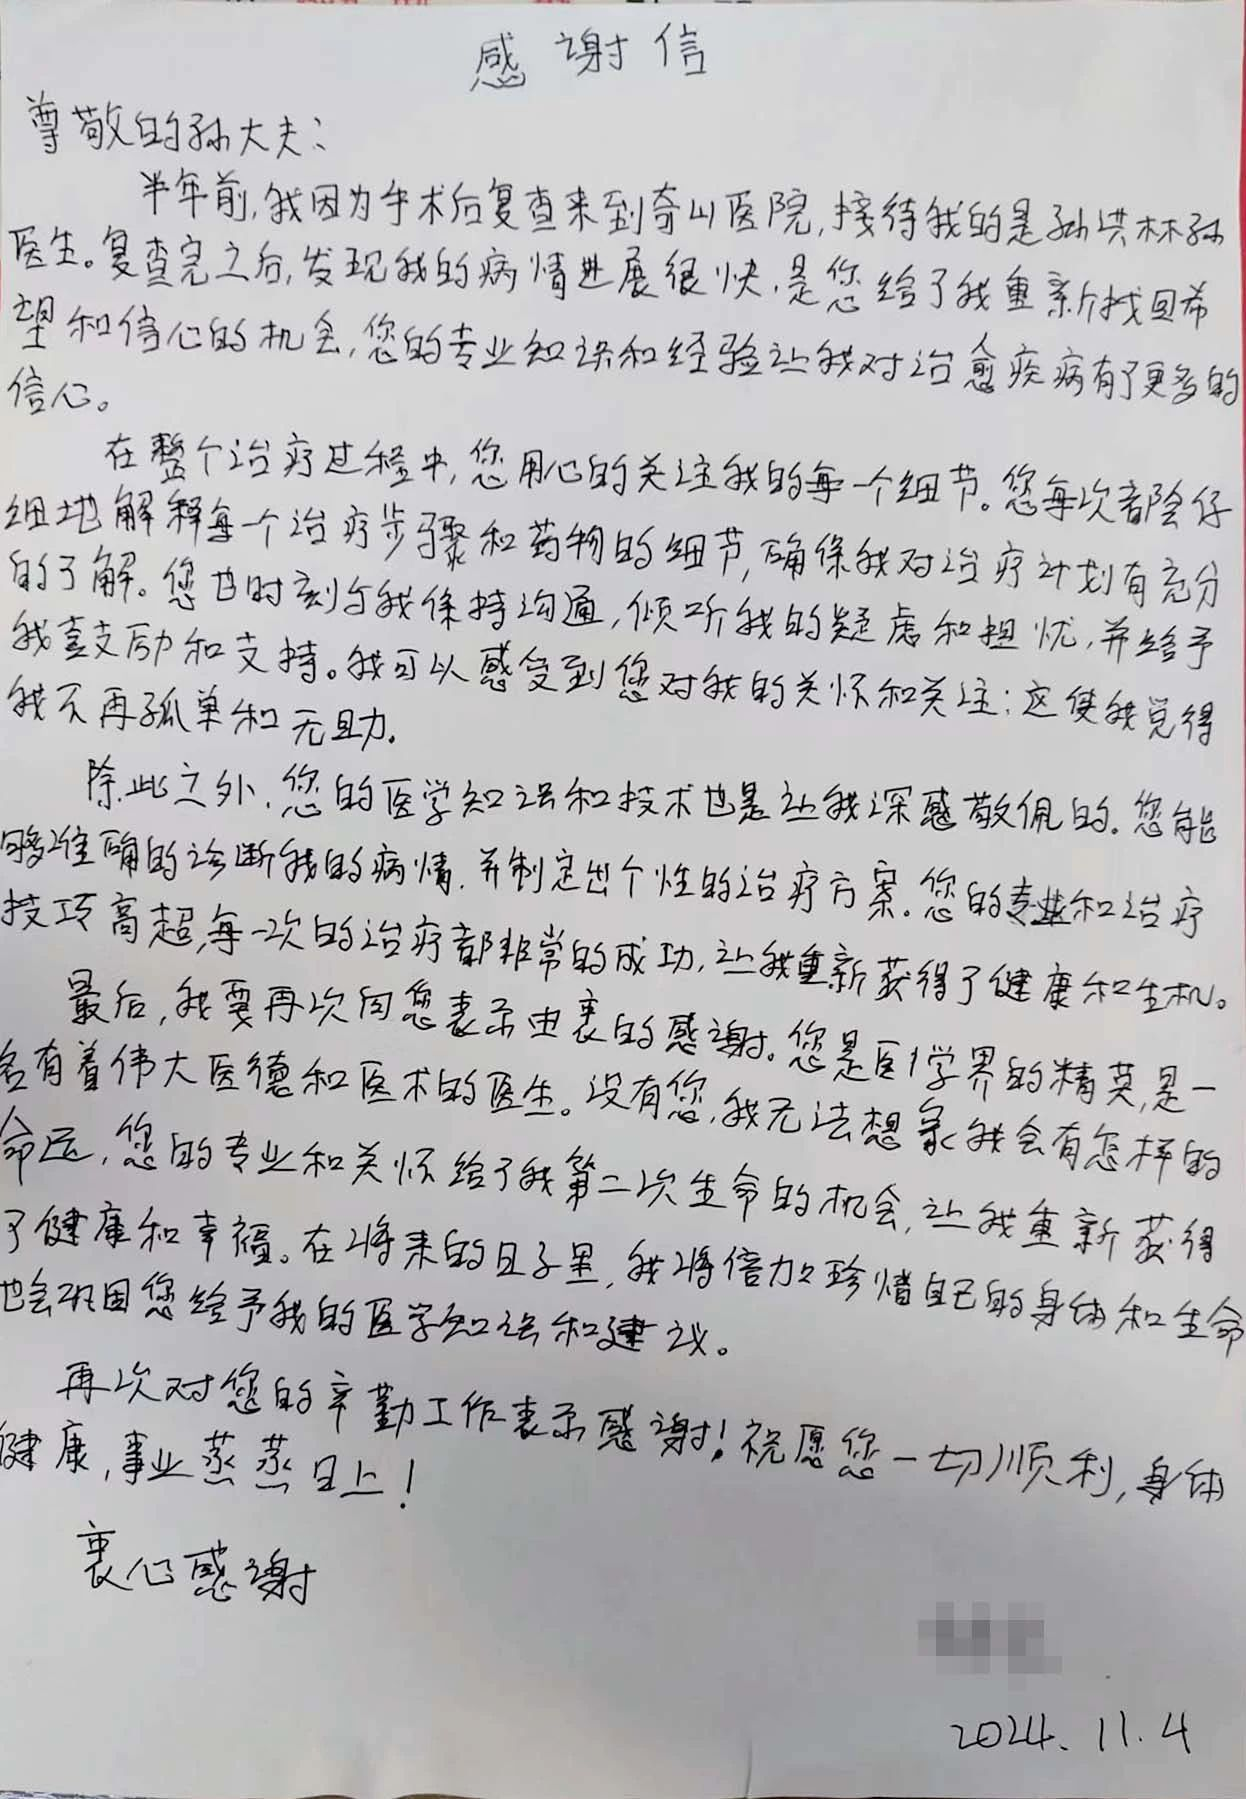 感谢信
尊敬的孙大夫：
半年前,我因为手术后复查来到奇山医院,接待我的是孙洪林孙
医生。复查完之后,发现我的病情进展很快,是您给了我重新找回希
望和信心的机会,您的专业知识和经验让我对治愈疾病有了更多的
信心。
在整个治疗过程中,您用心的关注我的每一个细节。您每次都会仔
细地解释每一个治疗步骤和药物的细节,确保我对治疗计划有充分
的了解。您也时刻与我保持沟通,倾听我的疑虑和担忧,并给予
我鼓励和支持。我可以感受到您对我的关怀和关注；这使我觉得
我不再孤单和无助.
除此之外,您的医学知识和技术也是让我深感敬佩的.您能
够准确的诊断我的病情.并制定出个性的治疗方案。您的专业和治疗
技巧高超,每一次的治疗都非常的成功,让我重新获得了健康和生机。
最后,我要再次向您表示由衷的感谢。您是医学界的精英,是一
名有着伟大医德和医术的医生。没有您,我无法想象我会有怎样的
命运,您的专业和关怀给了我第二次生命的机会,让我重新获得
了健康和幸福。在将来的日子里,我将倍加珍惜自己的身体和生命
也会巩固您给予我的医学知识和建议。
再次对您的辛勤工作表示感谢!祝愿您一切顺利,身体
健康,事业蒸蒸日上!
衷心感谢
2024.11.4